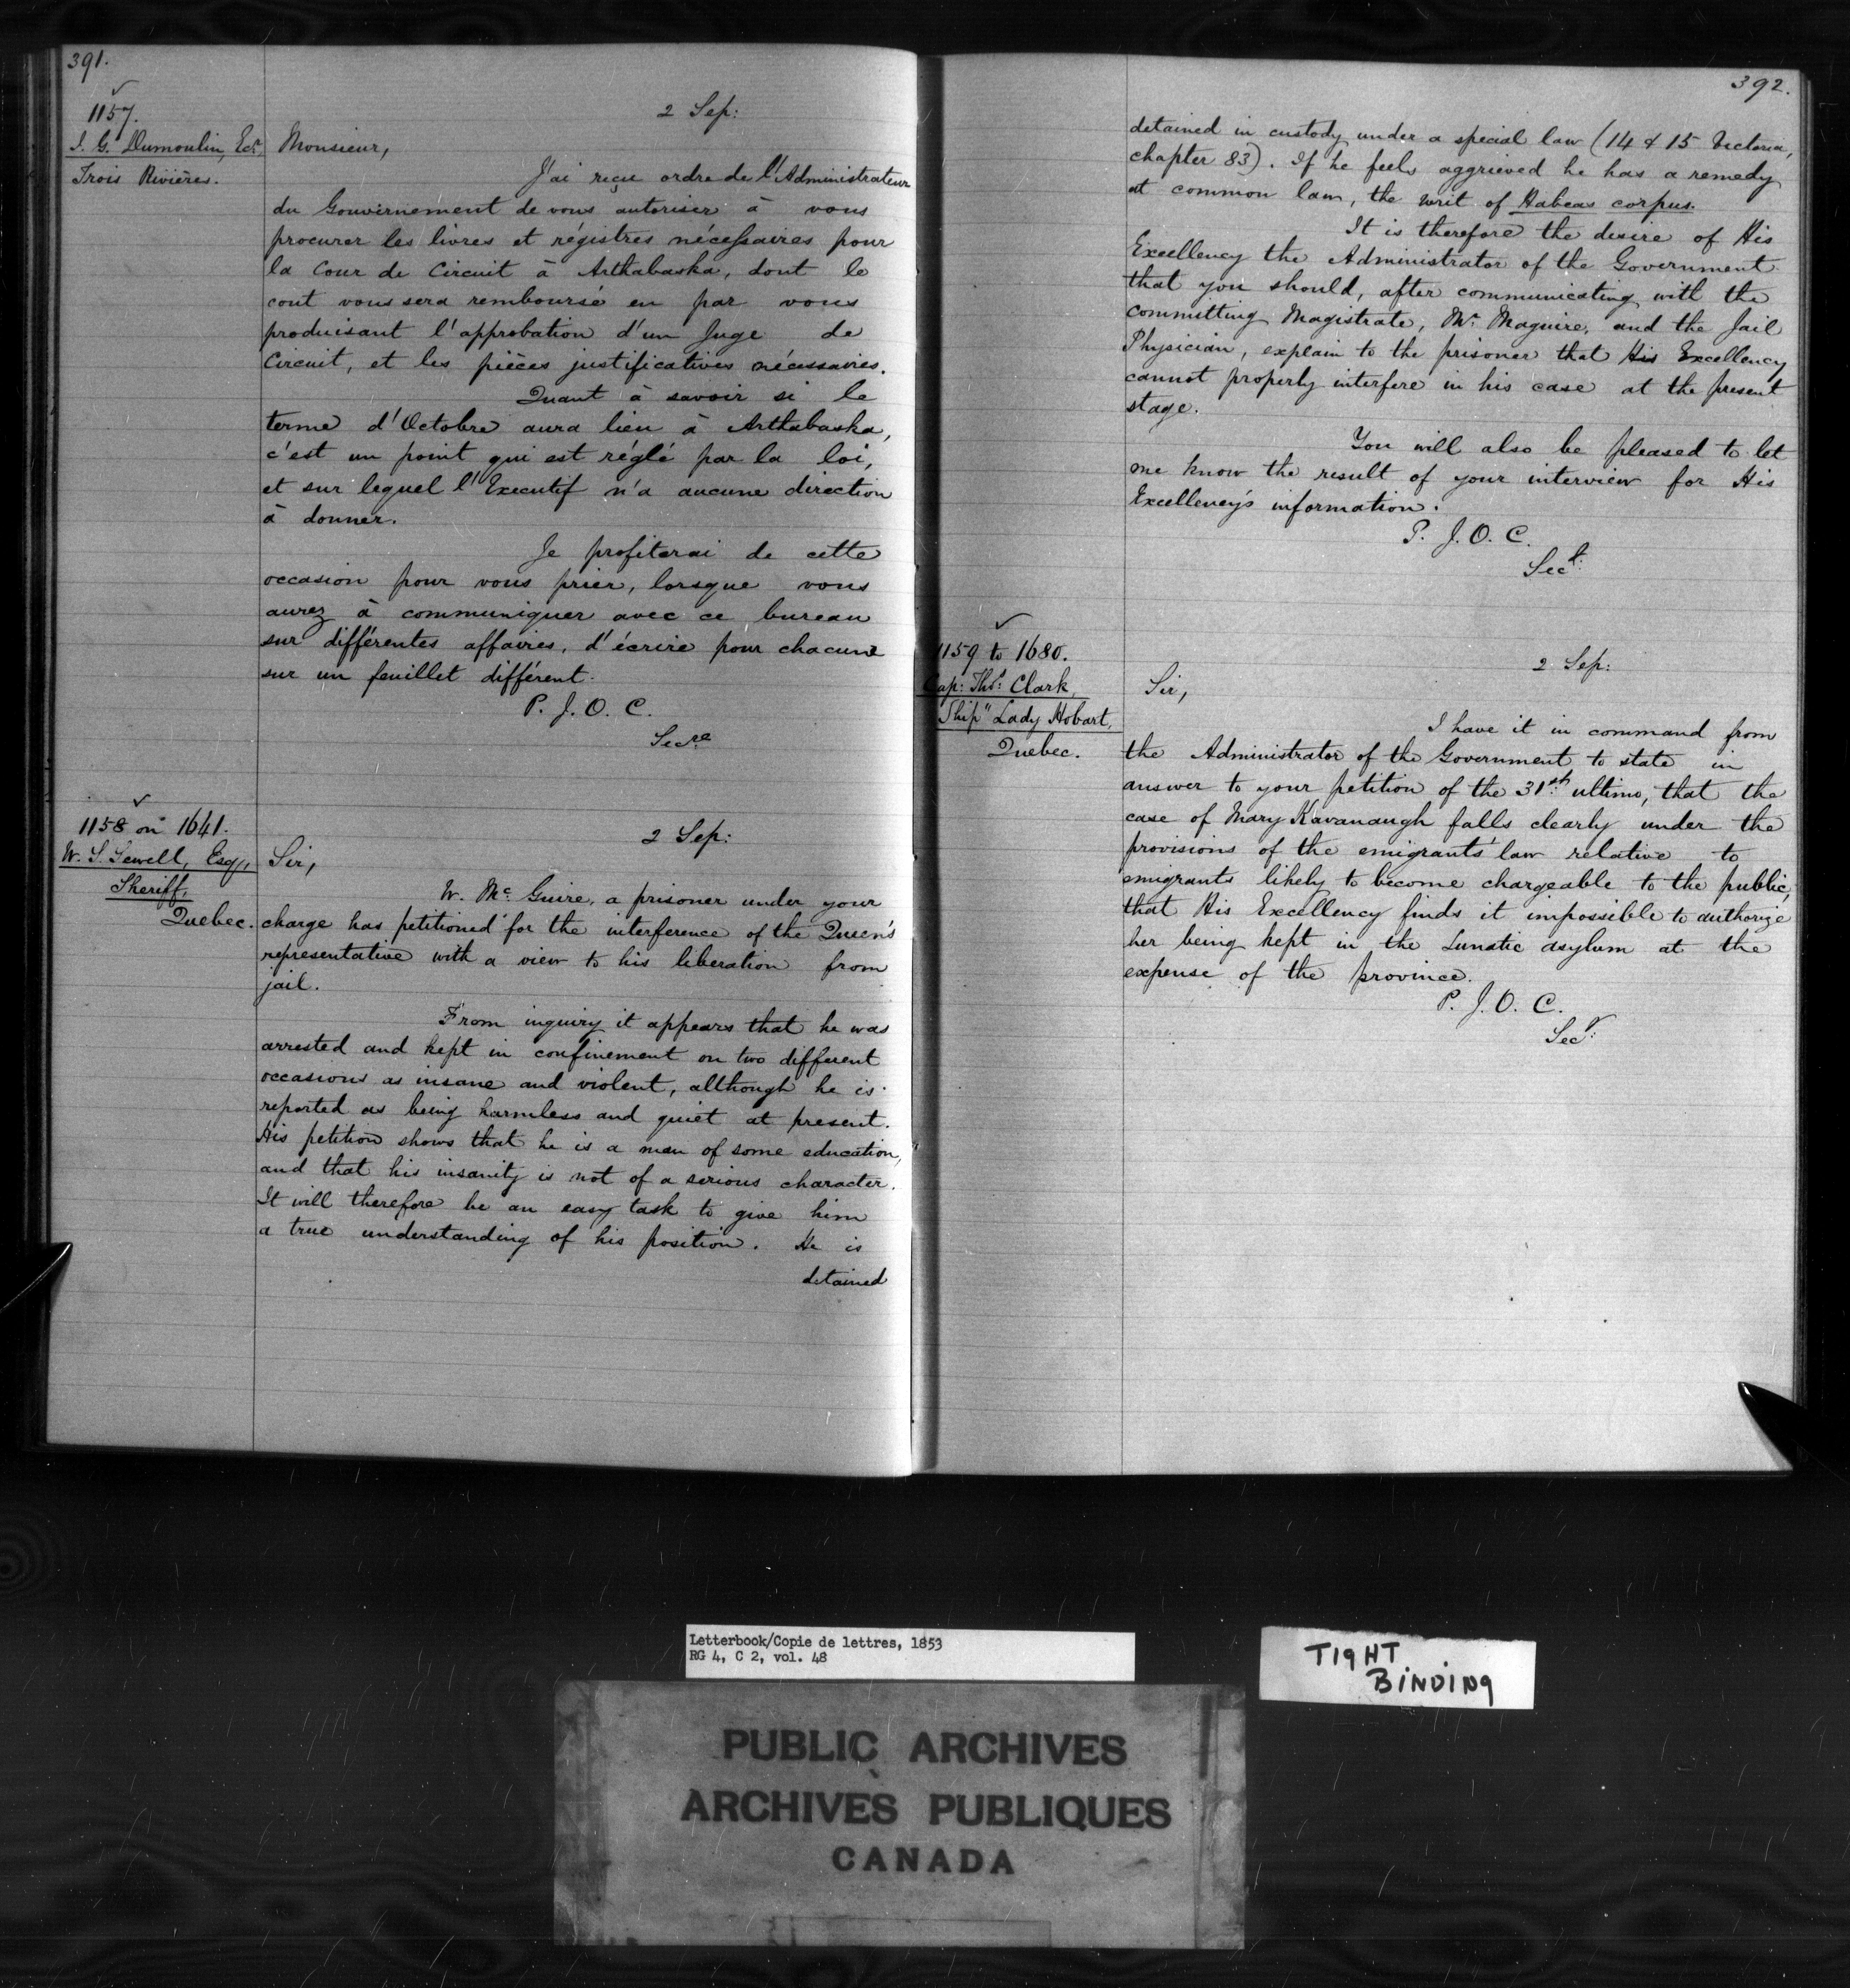 391.
1157.
J. G. Dumoulin, Ecr.
Trois Rivières.
2 Sep:
Monsieur,
J'ai reçu ordre de l'Administrateur
du Gouvernement de vous autoriser à vous
procurer les livres et régistres nécessaires pour
la Cour de Circuit à Arthabaska, dont le
cout vous sera remboursé en par vous
produisant l'approbation d'un Juge de
Circuit, et les pièces justificatives nécessaires.
Quant à savoir si le
terme d'Octobre aura lieu à Arthabaska,
c'est un point qui est réglé par la loi,
et sur lequel l'Executif n'a aucune direction
à donner.
Je profiterai de cette
occasion pour vous prier, lorsque vous
aurez à communiquer avec ce bureau
sur différentes affaires, d'écrire pour chacune
sur un feuillet différent.
P. J. O. C.
Secre
1158 on 1641.
W. S. Sewell, Esq,
Sheriff,
Quebec.
2 Sep:
Sir,
W. Mc Guire, a prisoner under your
charge has petitioned for the interference of the Queen's
representative with a view to his liberation from
jail.
From inquiry it appears that he was
arrested and kept in confinement on two different
occasions as insane and violent, although he is
reported as being harmless and quiet at present.
His petition shows that he is a man of some education,
and that his insanity is not of a serious character.
It will therefore be an easy task to give him
a true understanding of his position. He is
detained
392.
detained in custody under a special law (14 & 15 Victoria,
chapter 83). If he feels aggrieved he has a remedy
at common law, the writ of Habeas corpus.
It is therefore the desire of His
Excellency the Administrator of the Government
that you should, after communicating with the
committing Magistrate, Mr. Maguire, and the Jail
Physician, explain to the prisoner that His Excellency
cannot properly interfere in his case at the present
stage.
You will also be pleased to let
me know the result of your interview for His
Excellency's information.
P. J. O. C.
Secy:
1159 to 1680.
Cap: Thos: Clark,
Ship "Lady Hobart,
Quebec.
2 Sep:
Sir,
I have it in command from
the Administrator of the Government to state in
answer to your petition of the 31st ultimo, that the
case of Mary Kavanaugh falls clearly under the
provisions of the emigrants' law relative to
emigrants likely to become chargeable to the public,
that His Excellency finds it impossible to authorize
her being kept in the Lunatic asylum at the
expense of the province.
P. J. O. C.
Secy:
Letterbook/Copie de lettres, 1853
RG 4, C 2, vol. 48
TIGHT
BINDING
PUBLIC ARCHIVES
ARCHIVES PUBLIQUES
CANADA